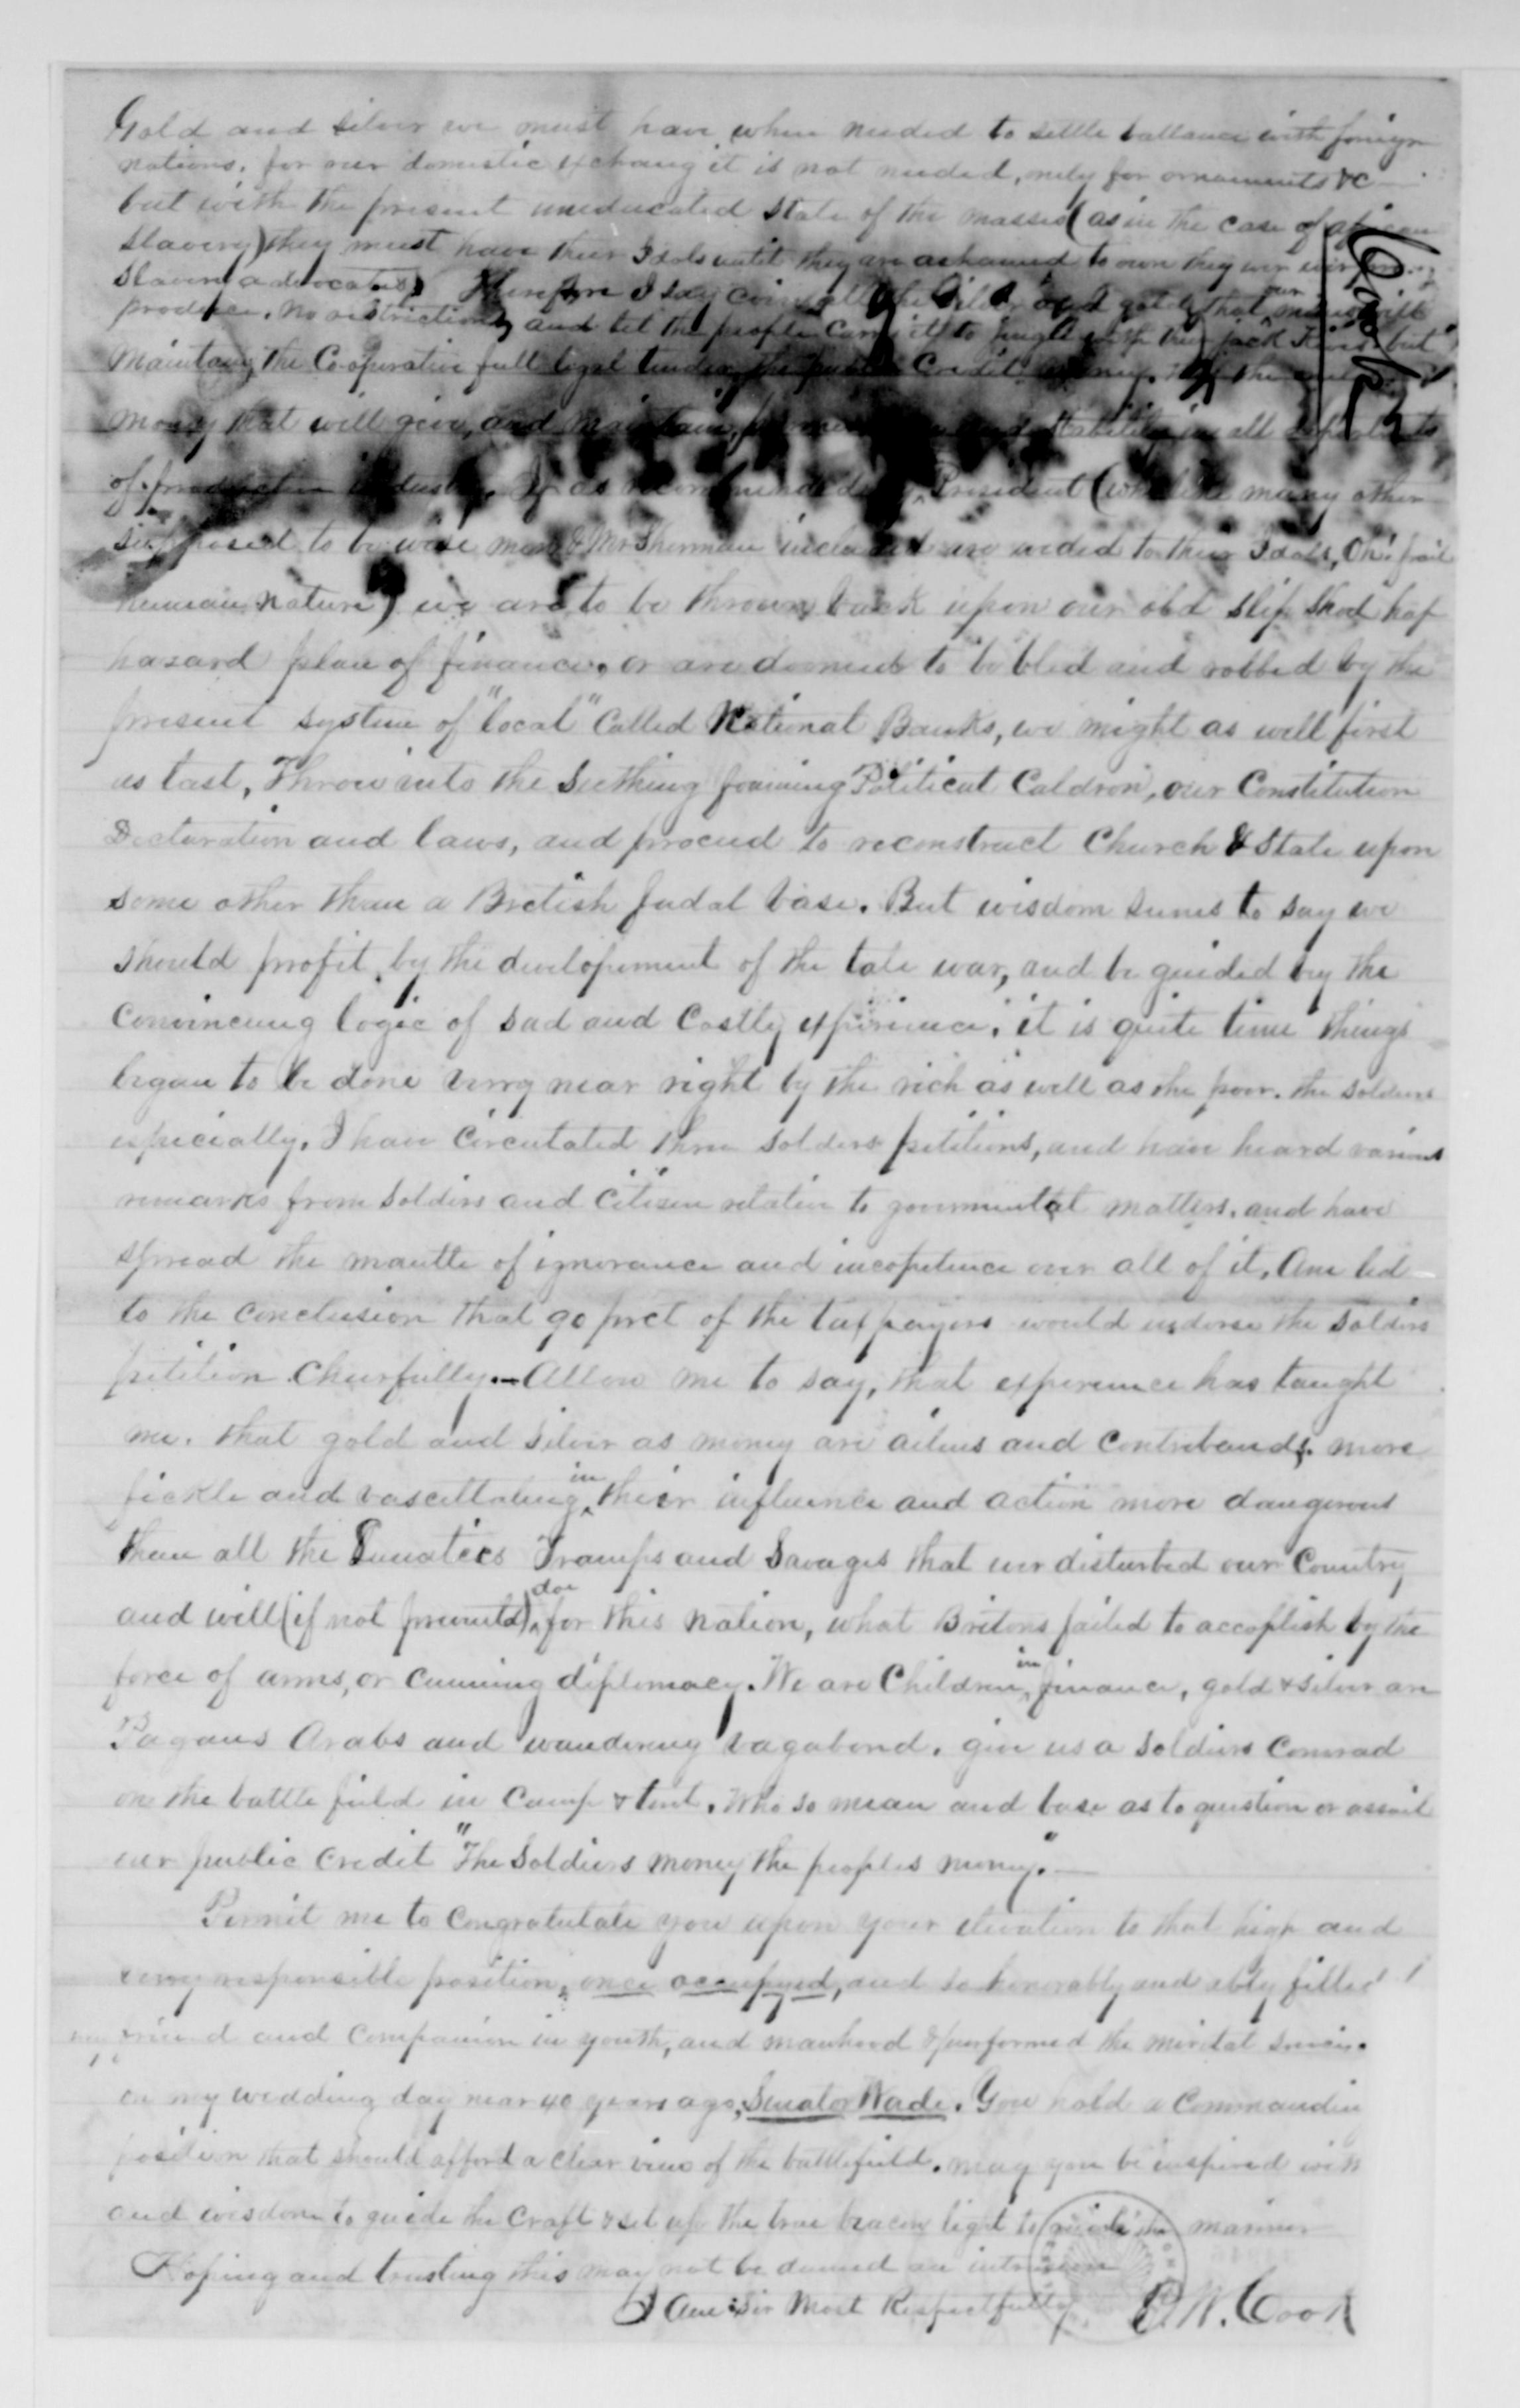 Gold and silver we must have when needed to settle ballance with foreign
nations. for our domestic exchang it is not needed, only for ornaments &c
but with the present uneducated state of the masses (as in the case of african
slavery) they must have their Idols until they are ashamed to own they ever
slavery advocates) Therefore I say coin all the silver and gold that our will
produce. No restrictions, and let the people carry it to jingle with their jack knives but
Maintain, the Co-operative full legal tender, the public Credit money.
money that will give, and maintain, stability in all
of production industry. If as recommended by President (who like many other
supposed to be wise men & Mr Sherman included are weded to their Idols, Oh! frail
human nature) we are to be thrown back upon our old slip shod hap
hazard plan of finance. or are doomed to be bled and robbed by the
present system of "local" Called National Banks, we might as well first
as last, Throw into the Seething foaming Political Caldron, our Constitution
Declaration and laws, and proceed to reconstruct Church & State upon
some other than a Bretish fudal base. But wisdom seems to say we
should profit by the developement of the late war, and be guided by the
Convincing logic of sad and Costly experience. it is quite time things
began to be done verry near right by the rich as well as the poor. the soldiers
especially. I have Circulated three soldiers petitions, and have heard various
remarks from soldiers and Citizen relative to governmental matters. and have
spread the mantle of ignorance and incopetence over all of it. Am led
to the conclusion that 90 prct of the taxpayers would indorse the soldiers
petition Cheerfully.— Allow me to say, that experience has taught
me. that gold and silver as money are aliens and contrebands. more
fickle and vascillating in their influence and action more dangerous
than all the Lunatics Tramps and Savages that ever disturbed our Country
and will (if not prevented) doe for this nation, what Britons failed to accoplish by the
force of arms, or Cunning diplomacy. We are Children in finance, gold & silver are
Pagans Arabs and wandering vagabond. give us a soldiers Comrad
on the battle field in Camp & tent. Who so mean and base as to question or assail
our public Credit "The Soldiers money the peoples money."—
Permit me to Congratulate you upon your elevation to that high and
verry responsible position, once occupyed, and so honorably and ably filled
my friend and Companion in youth, and manhood & performed the
on my wedding day near 40 years ago, Senator Wade. You hold a Commandin
position that should afford a clear view of the battlefield. may you be inspired with
and wisdom to guide the Craft & set up the true beacon light to guide the mariner
Hoping and trusting this may not be deemed an intrusion
I am Sir Most Respectfully
P. W. Cook